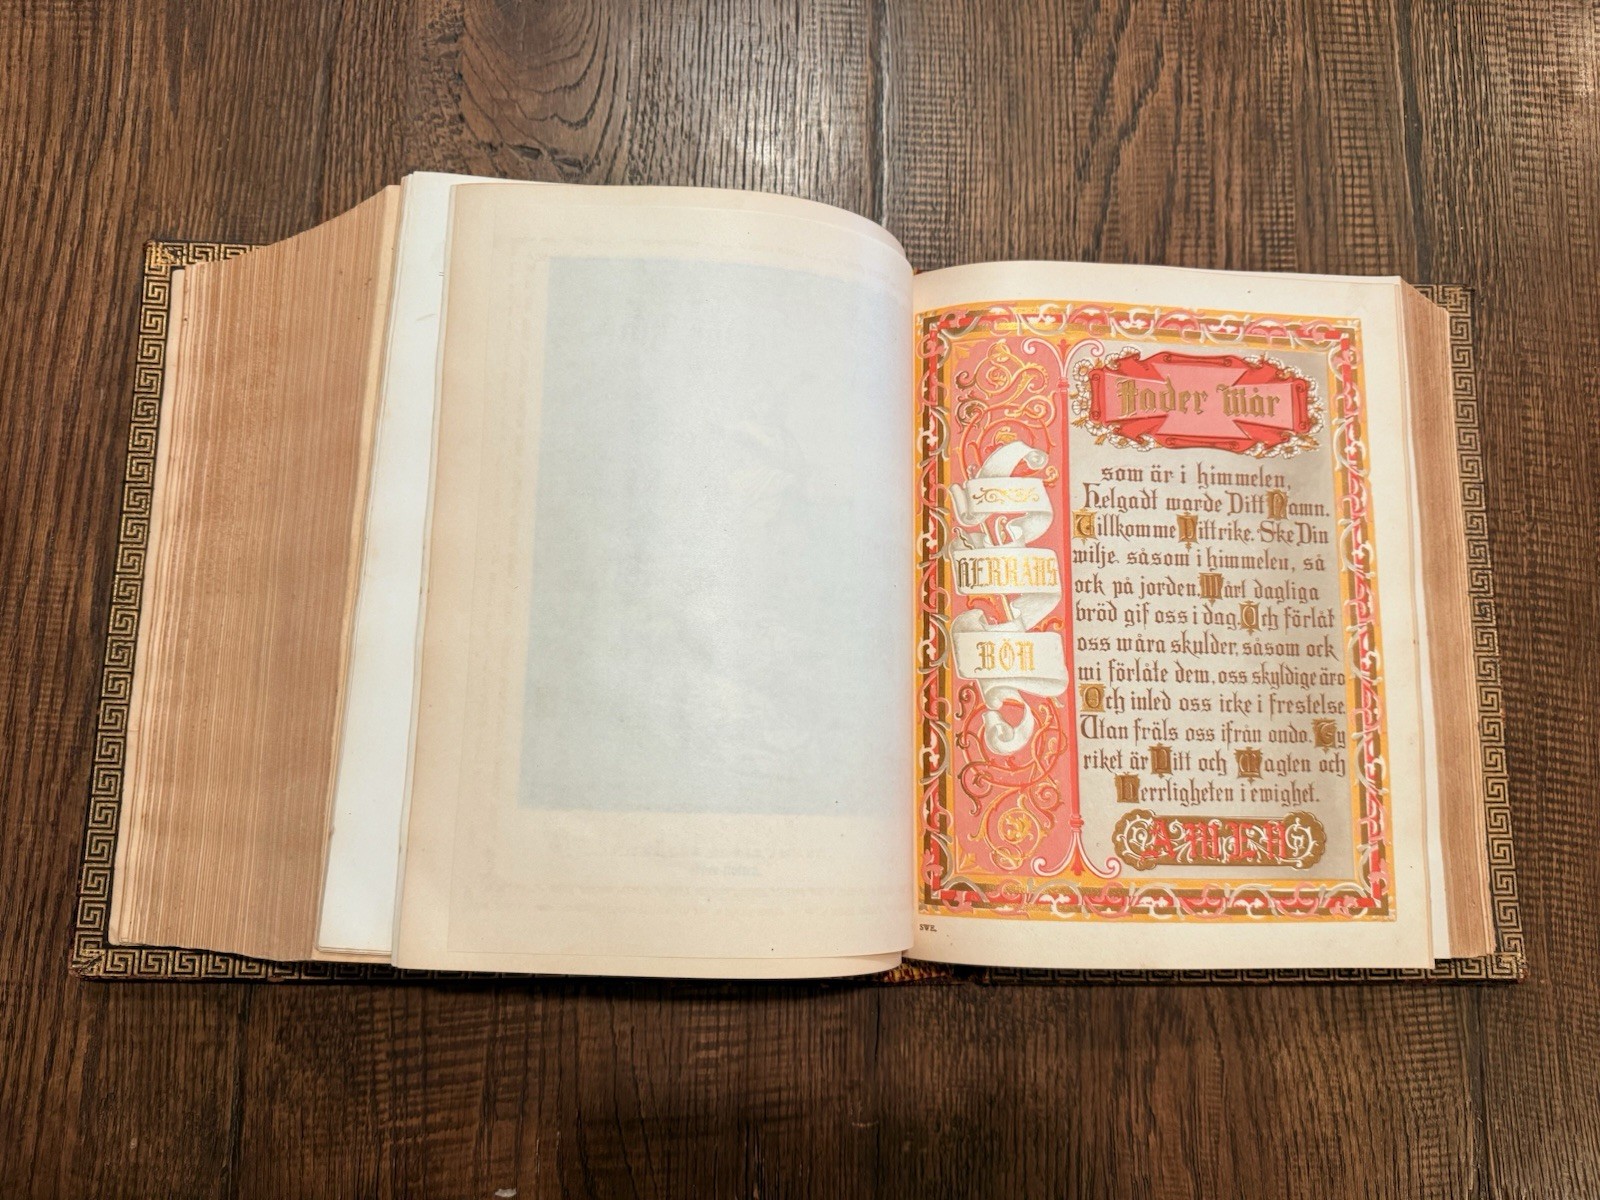 Fader Wår
HERRANS
BÖN
som är i himmelen,
Helgadt warde Ditt Namn.
Tillkomme Ditt rike. Ske Din
wilje. såsom i himmelen, så
ock på jorden. Wårt dagliga
bröd gif oss i dag. Och förlåt
oss wåra skulder, såsom ock
wi förlåte dem, oss skyldige äro
Och inled oss icke i frestelse
Utan fräls oss ifrån ondo. Ty
riket är Ditt och Magten och
Herrligheten i ewighet.
AMEN
SWE.